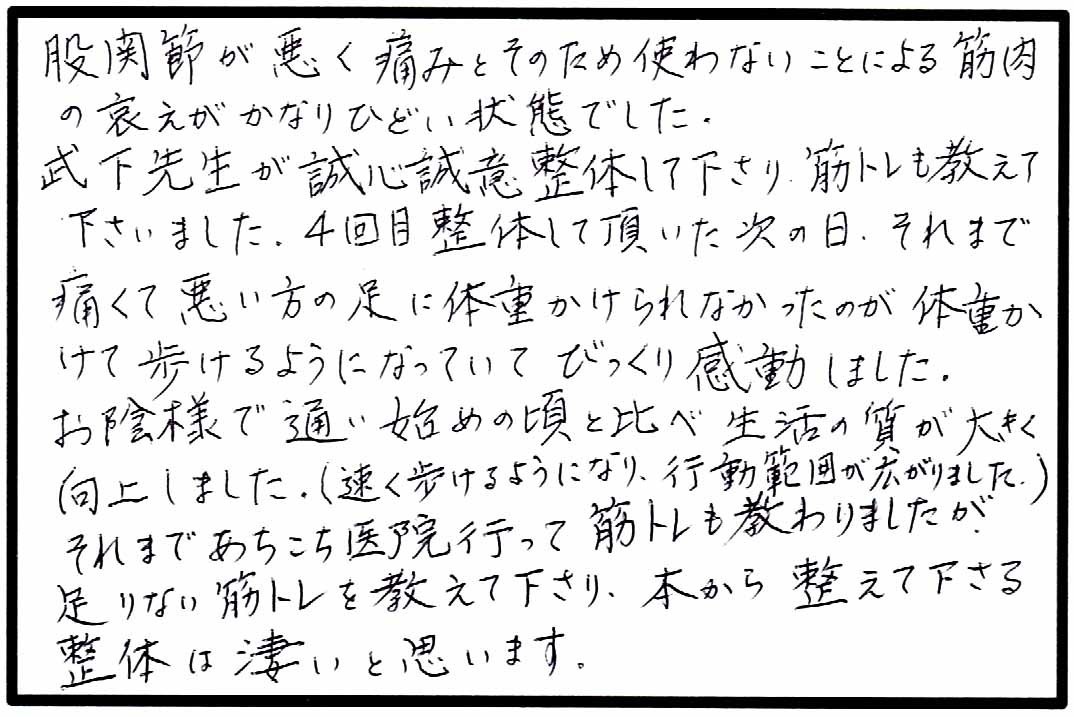 股関節が悪く痛みとそのため使わないことによる筋肉
の衰えがかなりひどい状態でした.
武下先生が誠心誠意整体して下さり、筋トレも教えて
下さいました. 4回目整体して頂いた次の日、それまで
痛くて悪い方の足に体重かけられなかったのが体重か
けて歩けるようになっていてびっくり感動しました.
お陰様で通い始めの頃と比べ生活の質が大きく
向上しました.(速く歩けるようになり、行動範囲が広がりました.)
それまであちこち医院行って筋トレも教わりましたが、
足りない筋トレを教えて下さり、本から整えて下さる
整体は凄いと思います。